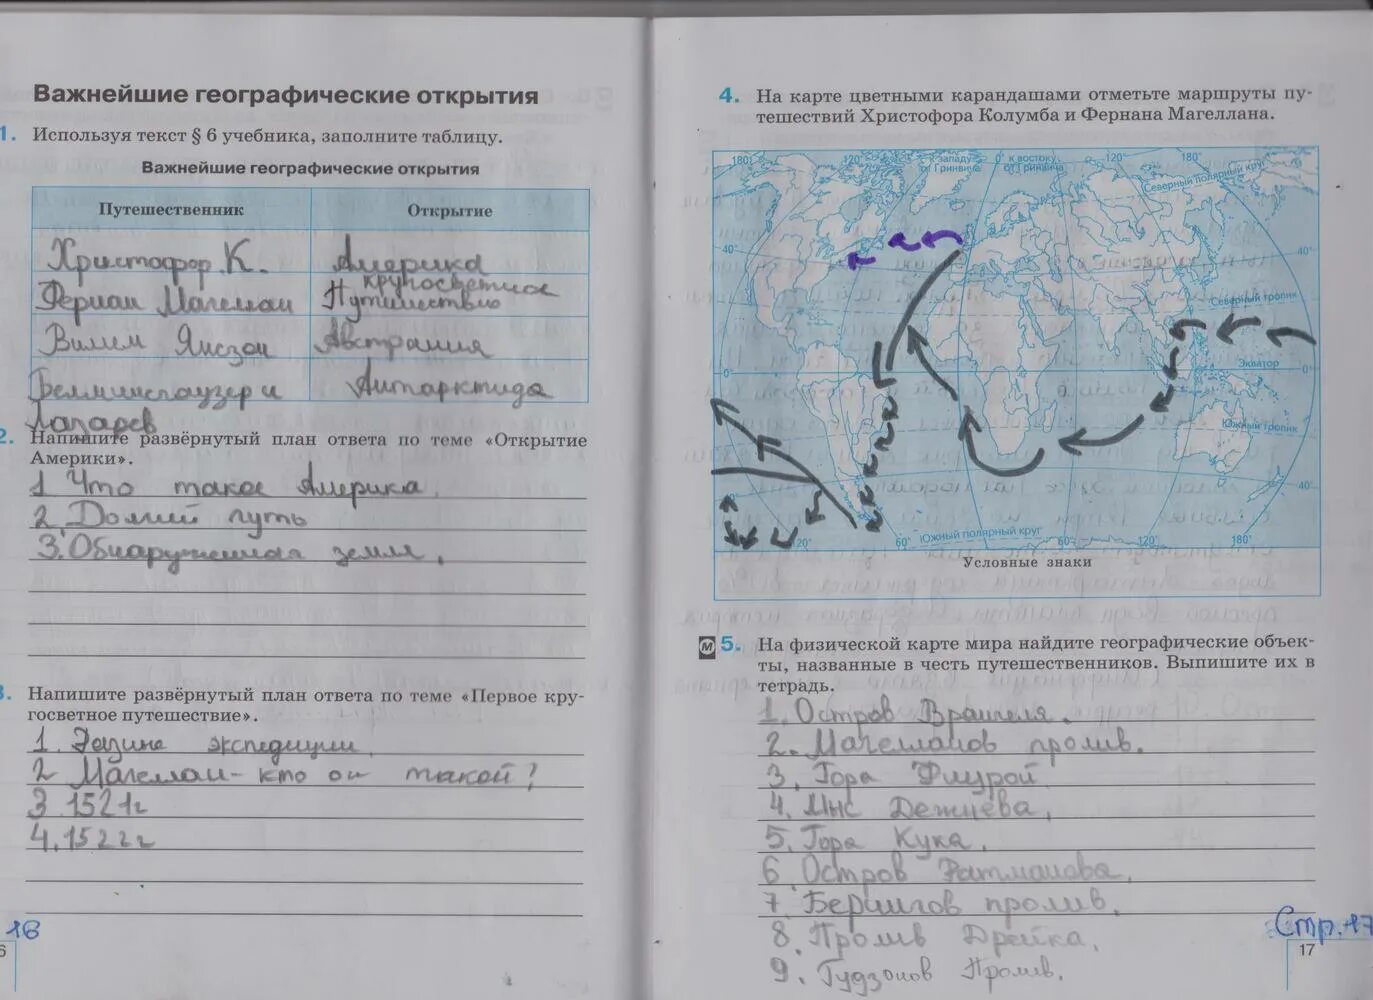 Важнейшие географические открытия
1. Используя текст § 6 учебника, заполните таблицу.
Важнейшие географические открытия
Путешественник Открытие
Христофор. К. Америка
Фернан Магеллан кругосветное Путишествию
Вилем Янсзон Австралия
Беллинсгаузер и Лазарев Антарктида
2. Напишите развёрнутый план ответа по теме «Открытие
Америки».
1 Что такое Америка.
2. Долгий путь
3. Обнаруженная земля.
3. Напишите развёрнутый план ответа по теме «Первое кру-
госветное путешествие».
1. экспедиции.
2 Магеллан - кто он такой?
3. 1521г
4. 1522г
16
6
4. На карте цветными карандашами отметьте маршруты пу-
тешествий Христофора Колумба и Фернана Магеллана.
180° 120° к западу от Гринвича 0° к востоку от Гринвича 120° 180°
Северный полярный круг
40° 40°
Северный тропик
0° Экватор 0°
Южный тропик
40°
Южный полярный круг
120° 60° 0° 60° 120° 180°
Условные знаки
М 5. На физической карте мира найдите географические объек-
ты, названные в честь путешественников. Выпишите их в
тетрадь.
1. Остров Врангеля.
2. Магелланов пролив.
3. Гора Фицрой
4. Мыс Дежнева.
5. Гора Кука.
6. Остров Ратманова.
7. Берингов пролив.
8. Пролив Дрейка.
9. Гудзонов Пролив.
Стр. 17
17